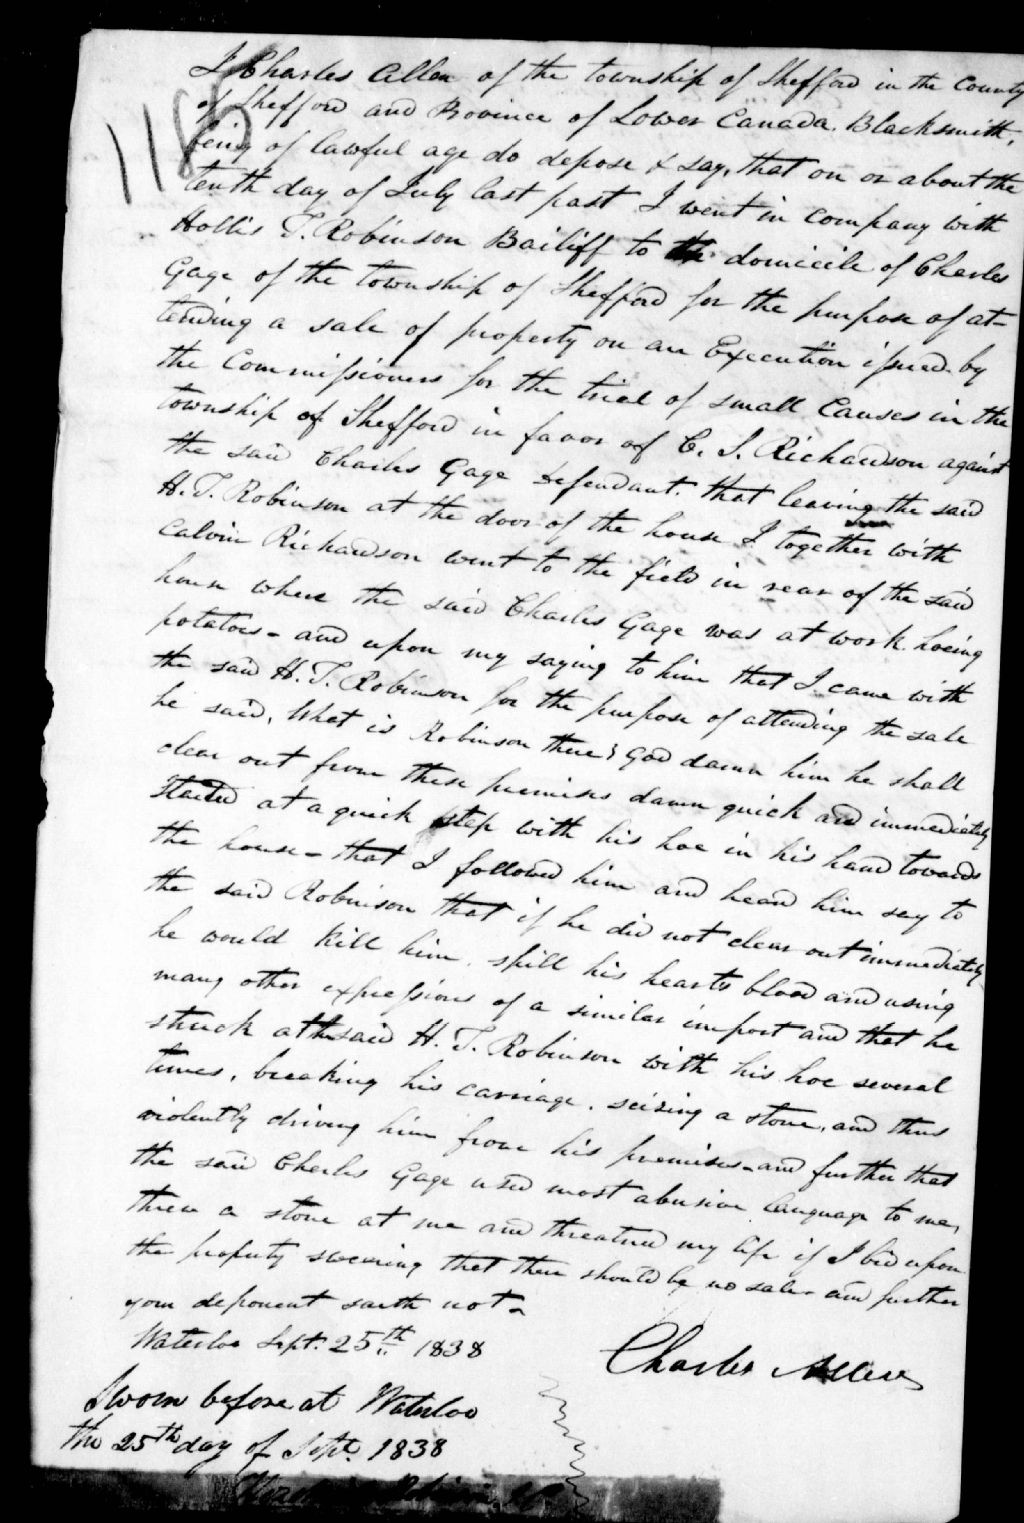 I Charles Allen of the township of Shefford in the County
of Shefford and Province of Lower Canada. Blacksmith,
being of lawful age do depose & say, that on or about the
tenth day of July last past I went in company with
Hollis T. Robinson Bailiff to the domicile of Charles
Gage of the township of Shefford for the purpose of at-
tending a sale of property on an Execution issued by
the Commissioners for the trial of small Causes in the
township of Shefford in favor of C. S. Richardson against
the said Charles Gage Defendant. that leaving the said
H. T. Robinson at the door of the house I together with
Calvin Richardson went to the field in rear of the said
house where the said Charles Gage was at work hoeing
potatoes - and upon my saying to him that I came with
the said H. T. Robinson for the purpose of attending the sale
he said, What is Robinson there? God damn him he shall
clear out from these premises damn quick and immediately
started at a quick step with his hoe in his hand towards
the house - that I followed him and heard him say to
the said Robinson that if he did not clear out immediately
he would kill him, spill his hearts blood and using
many other expressions of a similar import and that he
struck at the said H. T. Robinson with his hoe several
times, breaking his carriage, seizing a stone, and thus
violently driving him from his premises - and further that
the said Charles Gage used most abusive language to me,
threw a stone at me and threatened my life if I bid upon
the property swearing that there should be no sale - and further
your deponent saith not -
Waterloo Sept. 25th 1838
Charles Allen
Sworn before at Waterloo
the 25th day of Sept. 1838
118